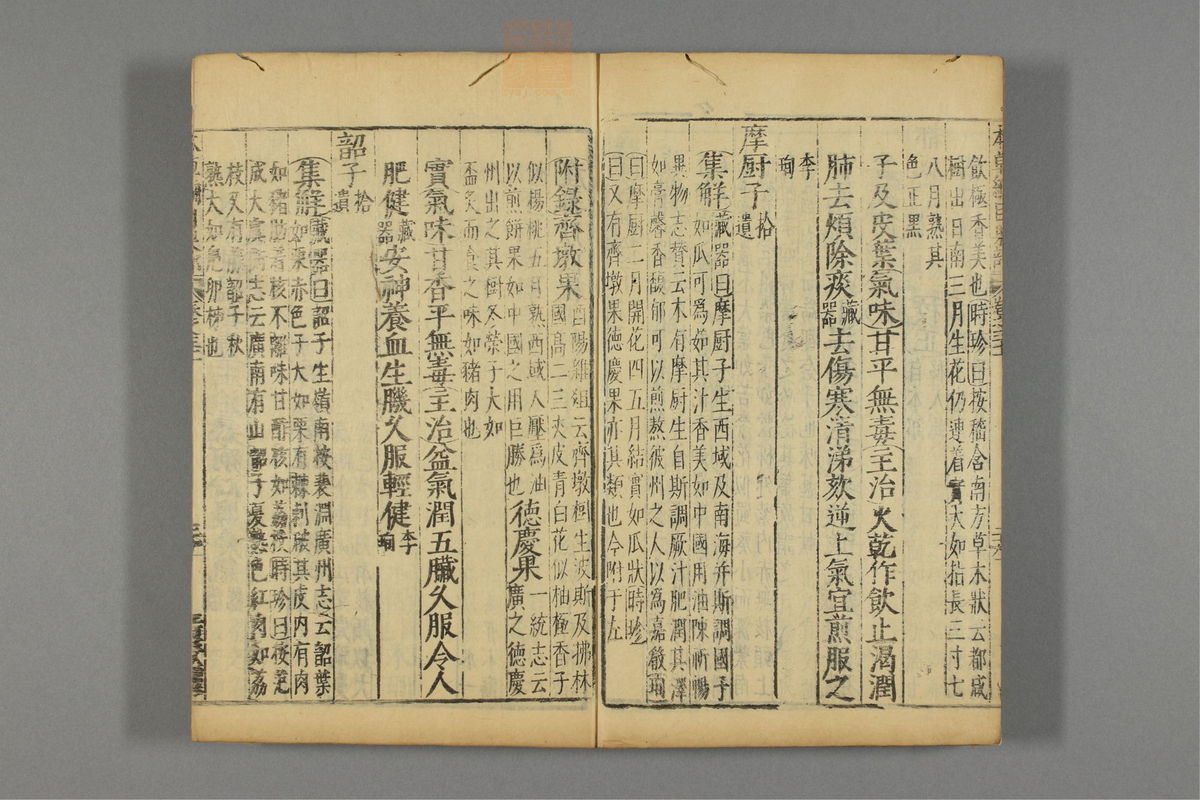 飲極香美也時珍曰按嵇含南方草木狀云都咸
樹出日南三月生花仍連着實大如指長三寸七
八月熟其
色正黑
子及皮葉氣味甘平無毒主治火乾作飲止渴潤
肺去煩除痰藏器去傷寒清涕欬逆上氣宜煎服之
李珣
摩厨子拾遺
集解藏器曰摩厨子生西域及南海并斯調國子
如瓜可爲茹其汁香美如中國用油陳祈暢
異物志贊云木有摩厨生自斯調厥汁肥潤其澤
如膏馨香馥郁可以煎熬彼州之人以爲嘉殽珣
曰摩厨二月開花四五月結實如瓜狀時珍
曰又有齊墩果德慶果亦其類也今附于左
附錄齊墩果酉陽雜俎云齊墩樹生波斯及拂林
國高二三丈皮青白花似柚極香子
似楊桃五月熟西域人壓爲油
以煎餅果如中國之用巨勝也德慶果一統志云
廣之德慶
州出之其樹冬榮子大如
盃炙而食之味如豬肉也
實氣味甘香平無毒主治益氣潤五臟久服令人
肥健藏器安神養血生肌久服輕健李珣
韶子拾遺
集解藏器曰韶子生嶺南按裴淵廣州志云韶葉
如栗赤色子大如栗有棘刺破其皮內有肉
如豬肪着核不離味甘酢核如荔枝時珍曰按范
成大虞衡志云廣南有山韶子夏熟色紅肉如荔
枝又有藤韶子秋
熟大如鳧卵柿也